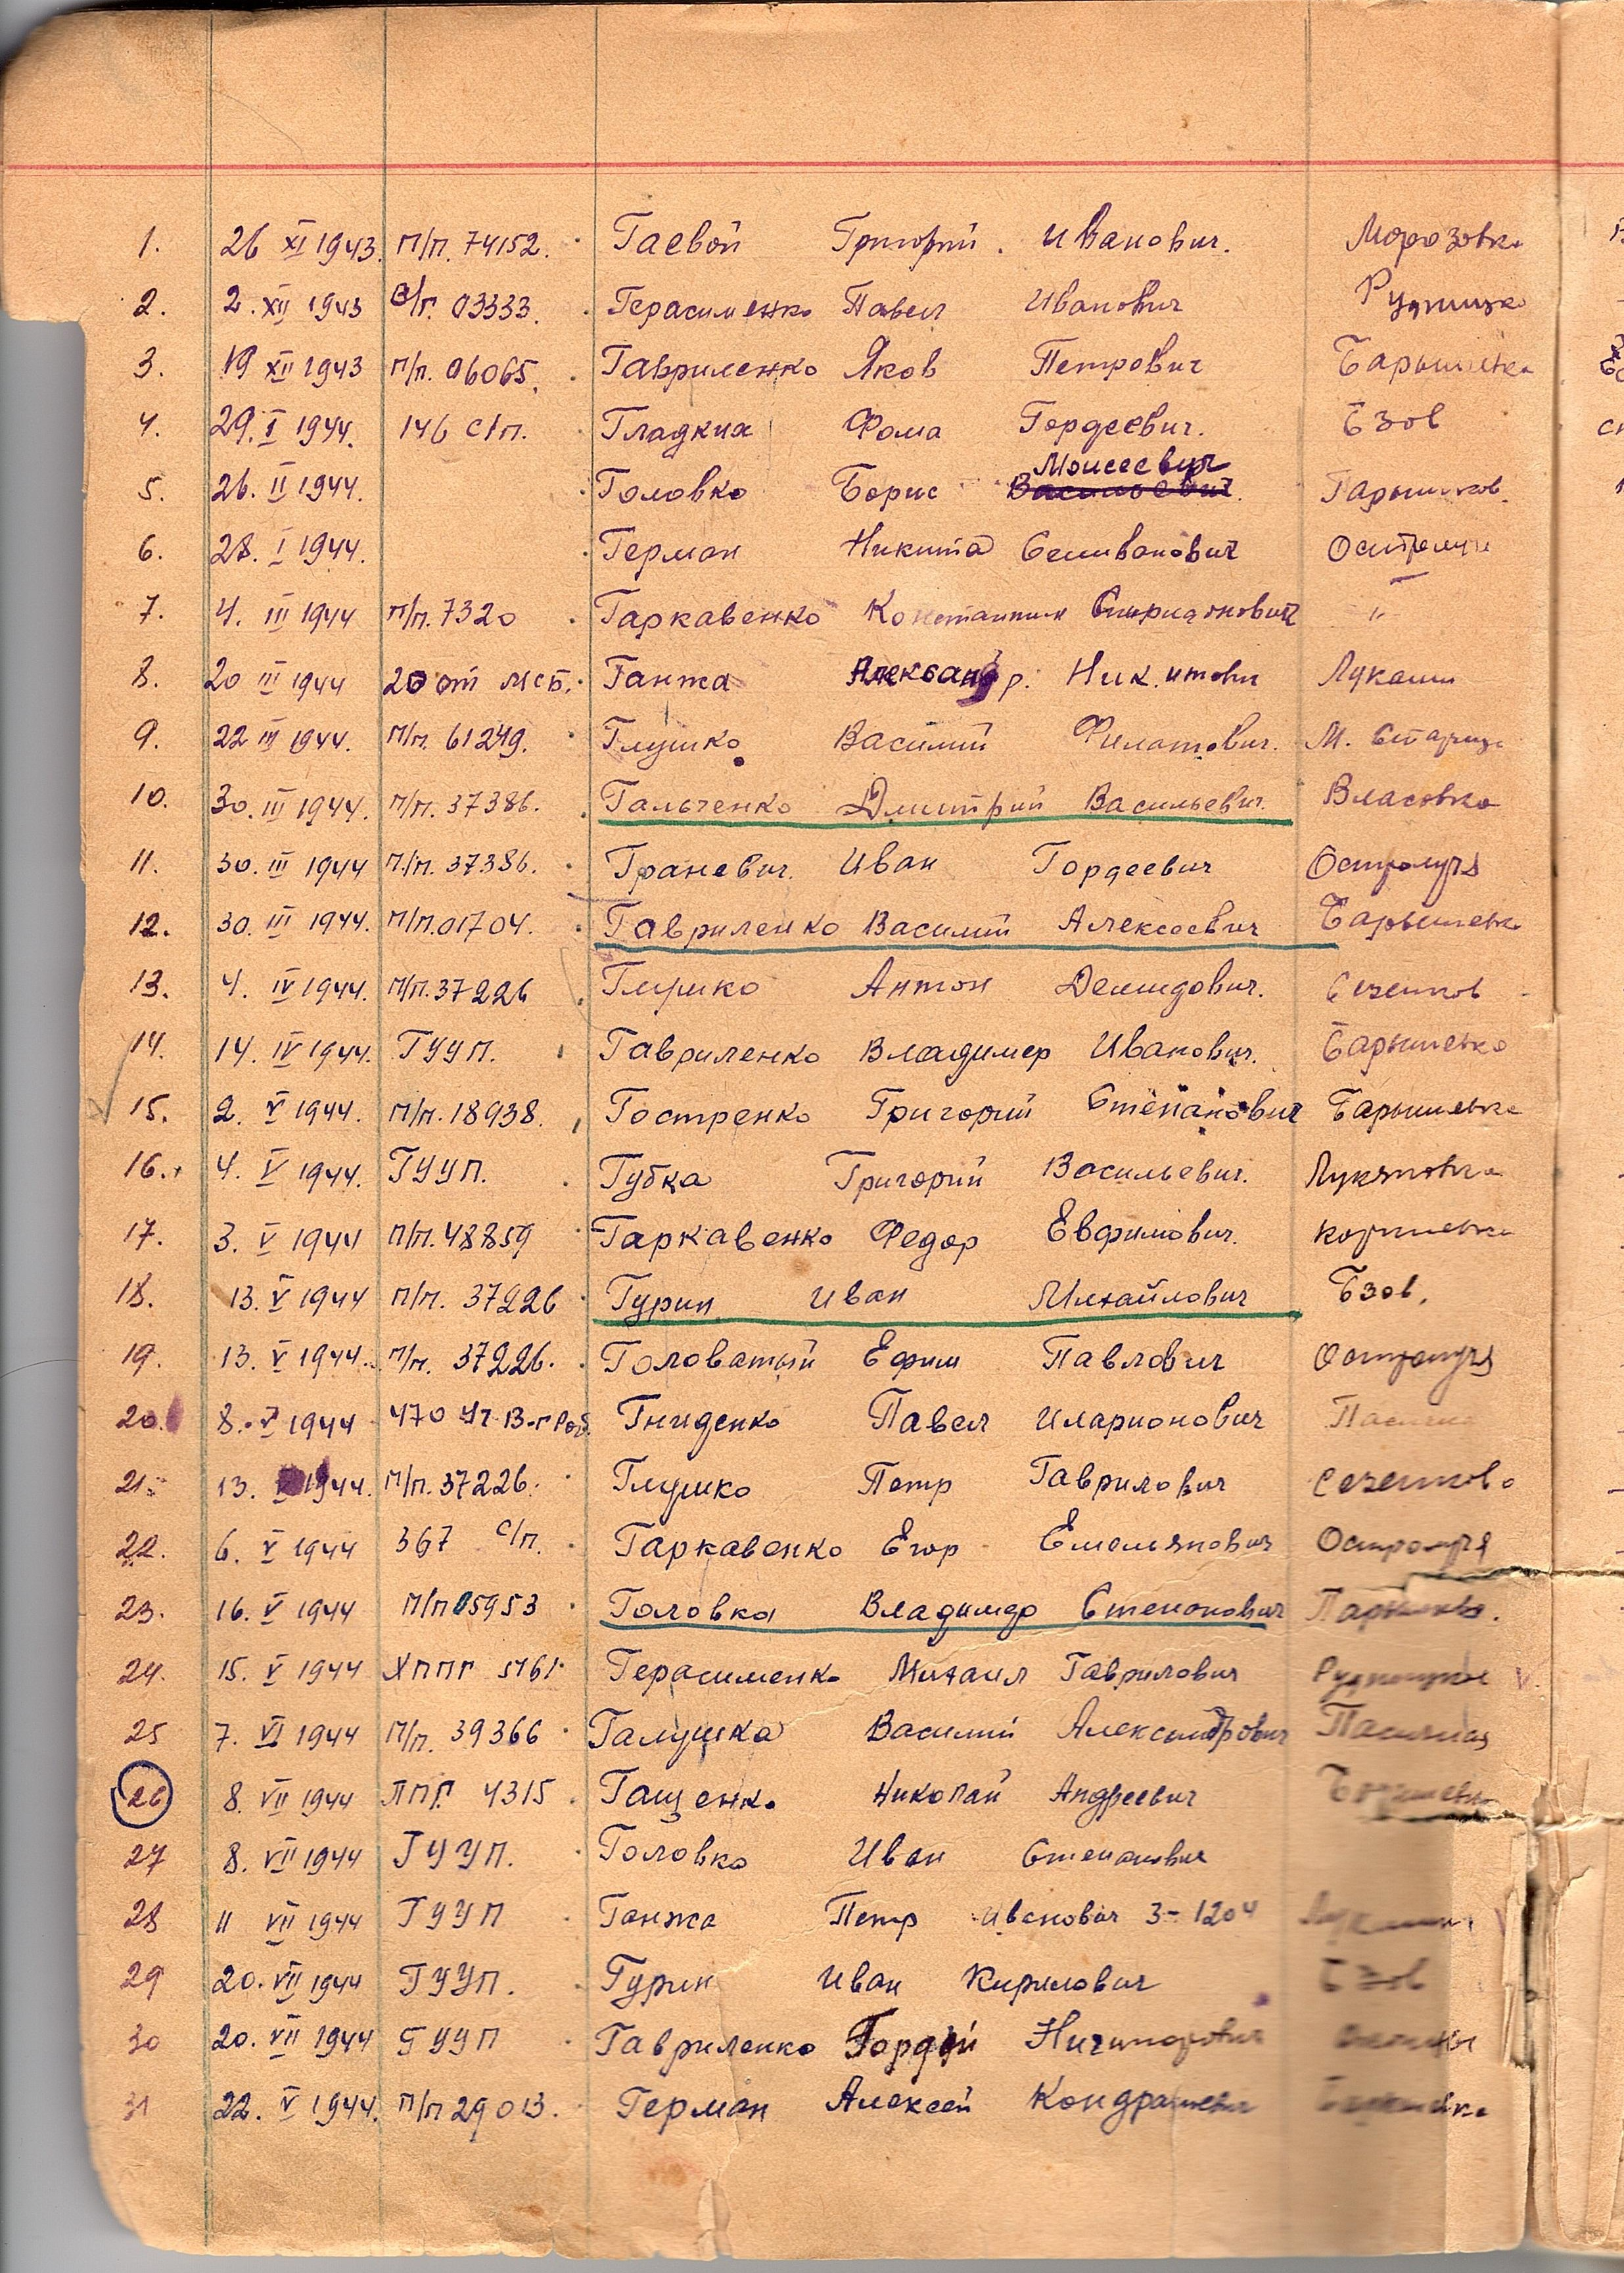 1. 26 XI 1943. П/п. 74152. Гаевой Григорий. Иванович. Морозовка
2. 2. XII 1943 03333. Герасименко Павел Иванович Рудницко
3. 19 XII 1943 П/п. 06065. Гавриленко Яков Петрович Барышевка
4. 29. I 1944. 146 с/п. Гладкий Фома Гордеевич. Бзов
5. 26. II 1944. Головко Борис Моисеевич Васильевич.
6. 28. I 1944. Герман Никита Селивонович Остролучи
7. 4. III 1944 П/п. 7320 Гаркавенко Константин Спиридонович "
8. 20 III 1944 20 от мсб. Ганжа Александр. Никитови Лукаши
9. 22 III 1944. П/п. 61249. Глушко Василий Филатович. М. Старица
10. 30. III 1944. П/п. 37386. Гальченко Дмитрий Васильевич. Власовка
11. 30. III 1944 П/п. 37386. Граневич. Иван Гордеевич Остролучя
12. 30. III 1944. П/п. 01704. Гавриленко Василий Алексеевич Барышевка
13. 4. IV 1944. П/п. 37226 Глушко Антон Демидович. Сезенков
14. 14. IV 1944. ГУУП. Гавриленко Владимер Иванович. Барышевка
15. 2. V 1944. П/п. 18938. Гостренко Григорий Степанович Барышевка
16. 4. V 1944. ГУУП. Губка Григорий Васильевич. Лукяновка
17. 3. V 1944 П/п. 48859 Гаркавенко Федор Евфимович. Коржневка
18. 13. V 1944 П/п. 37226 Гурин Иван Михайлович Бзов.
19. 13. V 1944. П/п. 37226. Головатый Ефим Павлович Остролучя
20. 8. V 1944 470 Гниденко Павел Иларионович
21. 13. 1944. П/п. 37226. Глушко Петр Гаврилович Сезенково
22. 6. V 1944 367 с/п. Гаркавенко Егор Емельянович Остролучя
23. 16. V 1944 П/п 05953 Головко Владимдр Степонович
24. 15. V 1944 ХППГ 5161. Герасименко Михаил Гаврилович Рудницкое
25 7. VI 1944 П/п. 39366 Галушка Василий Александрович Пасечная
26 8. VII 1944 ППГ 4315 Гащенко Николай Андреевич
27 8. VII 1944 ГУУП. Головко Иван Степанович
28 11 VII 1944 ГУУП Ганжа Петр Иванович 3-1204
29 20. VII 1944 ГУУП. Гурин Иван Кирилович Бзов
30 20. VII 1944 ГУУП Гавриленко Гордей Ничипорович
31 22. V 1944. П/п 29013. Герман Алексей Кондратиевич